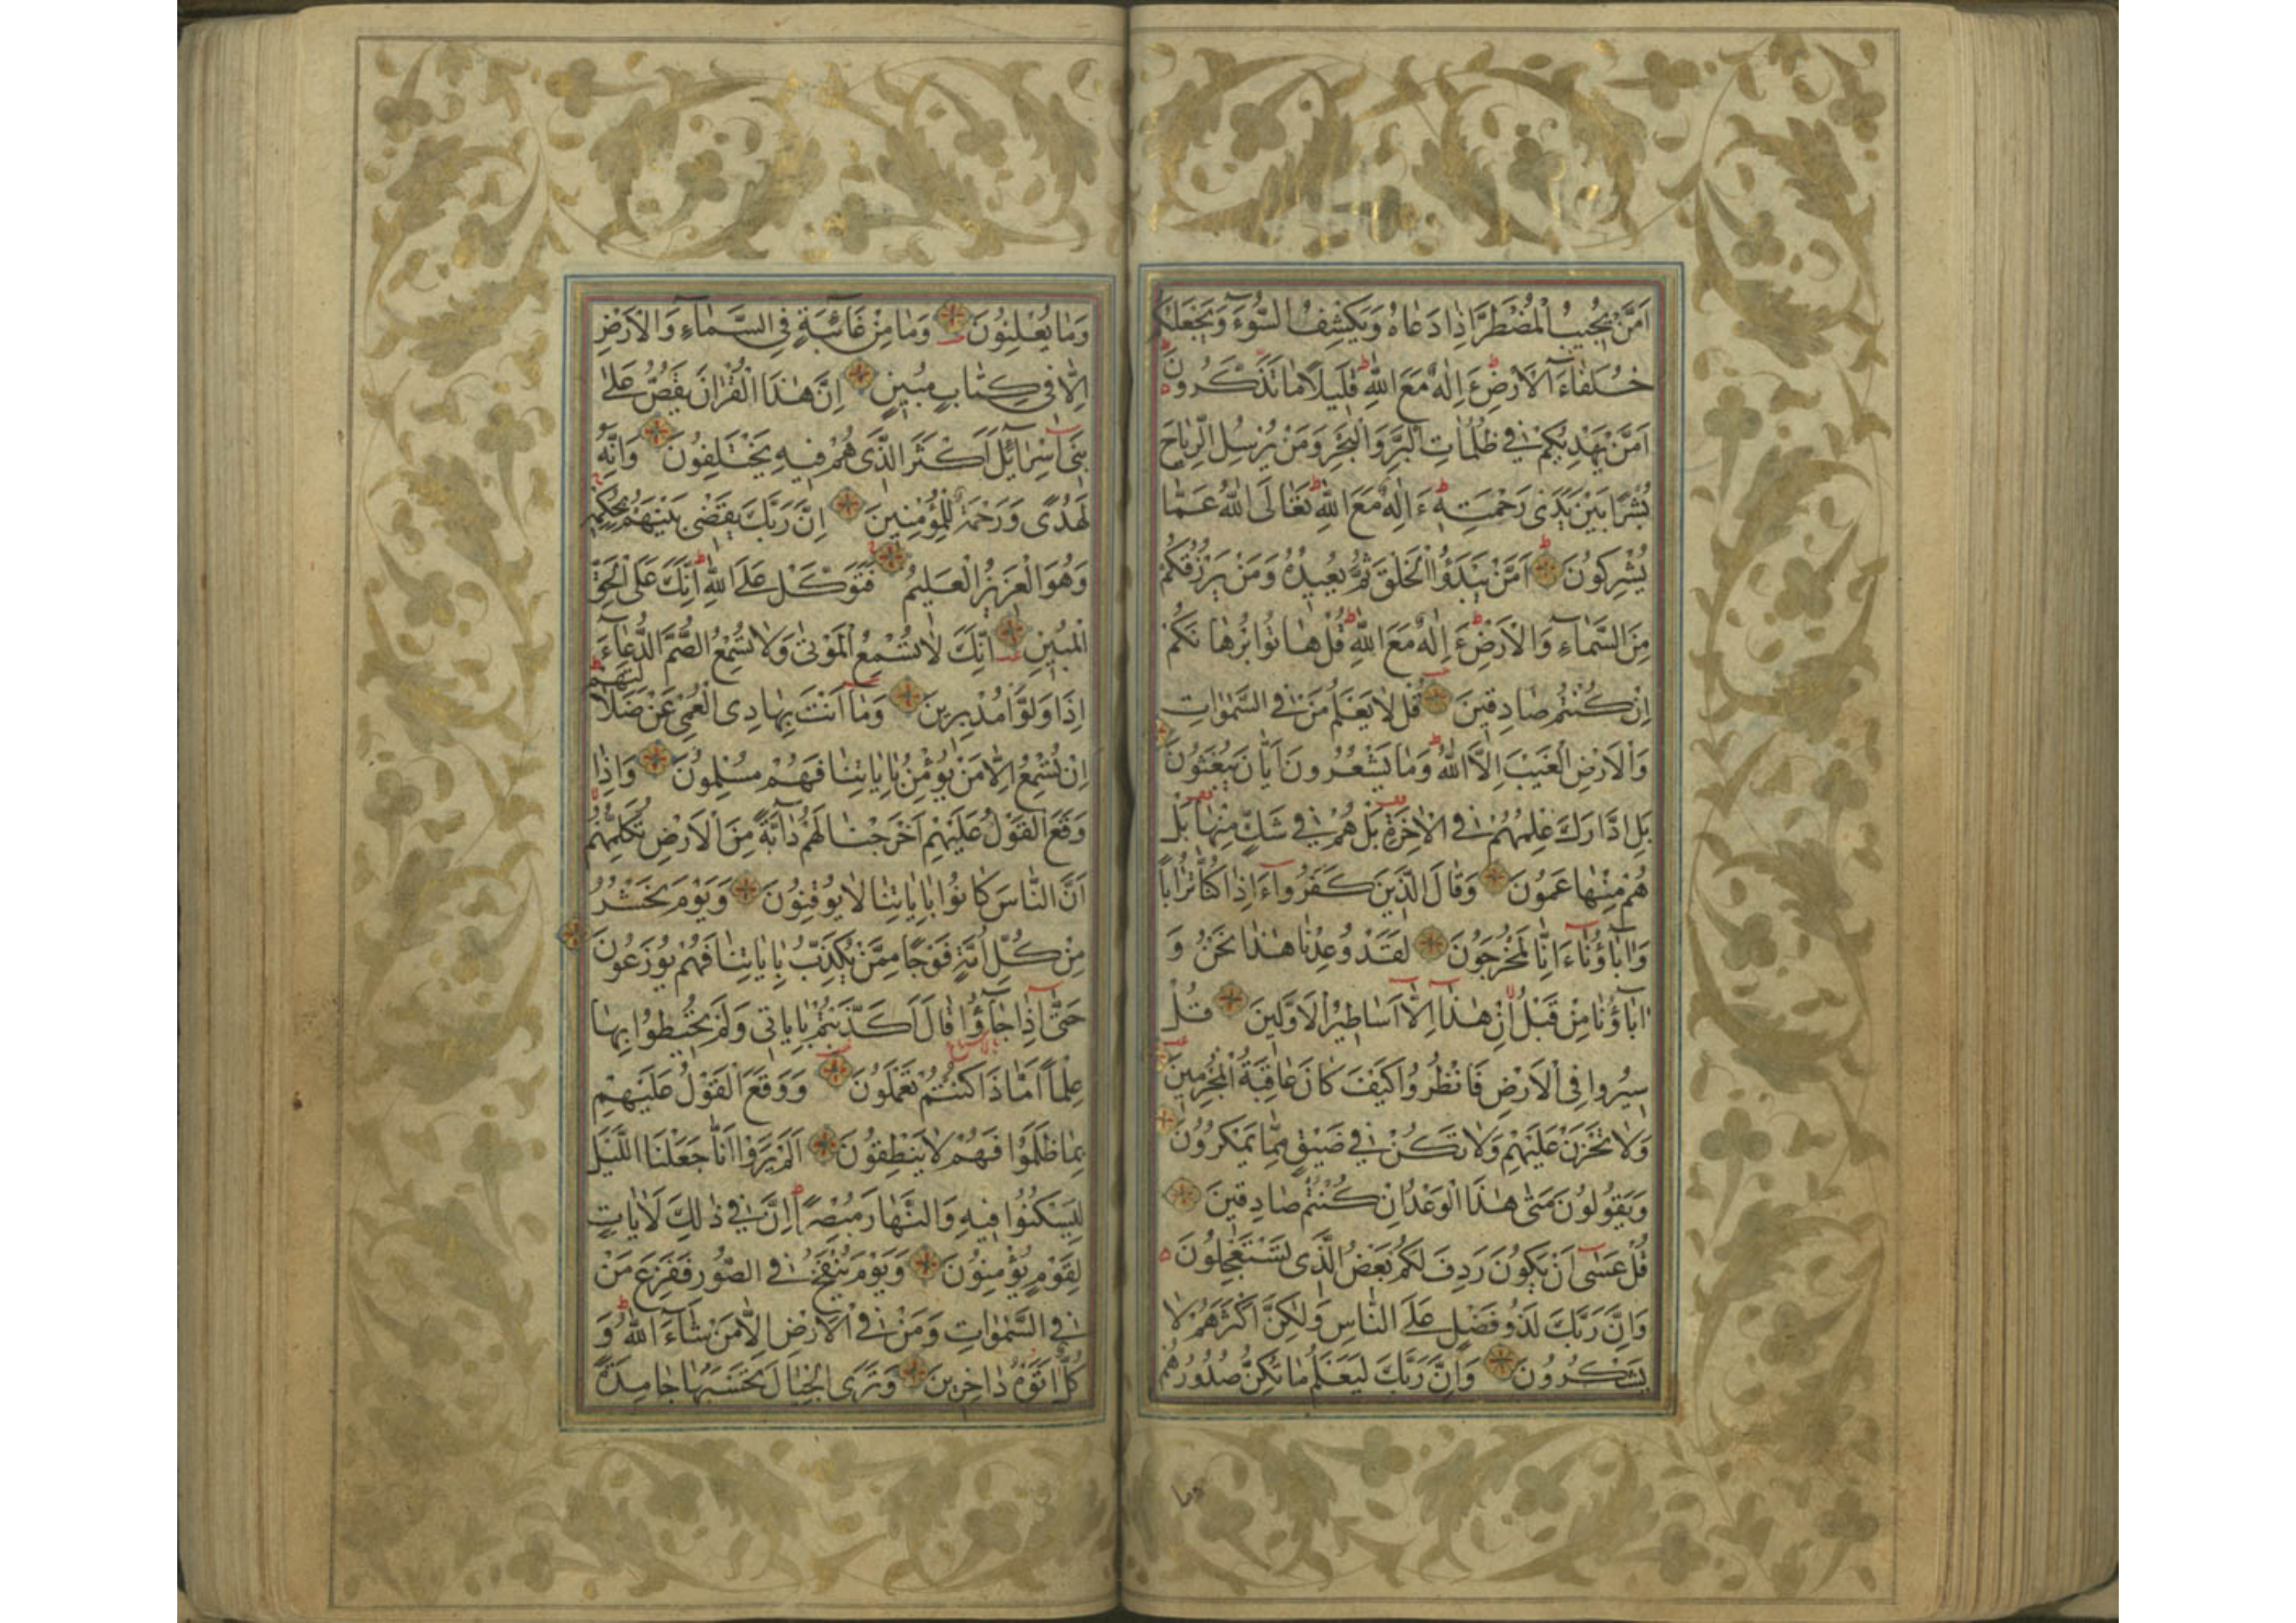 اَمَّنْ يُجِيبُ الْمُضْطَرَّ اِذَا دَعَاهُ وَيَكْشِفُ السُّوٓءَ وَيَجْعَلُكُمْ
خُلَفَآءَ الْاَرْضِ ءَاِلٰهٌ مَعَ اللّٰهِ قَلِيلًا مَا تَذَكَّرُونَ
اَمَّنْ يَهْدِيكُمْ فِي ظُلُمَاتِ الْبَرِّ وَالْبَحْرِ وَمَنْ يُرْسِلُ الرِّيَاحَ
بُشْرًا بَيْنَ يَدَىْ رَحْمَتِهِ ءَاِلٰهٌ مَعَ اللّٰهِ تَعَالَى اللّٰهُ عَمَّا
يُشْرِكُونَ اَمَّنْ يَبْدَؤُا الْخَلْقَ ثُمَّ يُعِيدُهُ وَمَنْ يَرْزُقُكُمْ
مِنَ السَّمَآءِ وَالْاَرْضِ ءَاِلٰهٌ مَعَ اللّٰهِ قُلْ هَاتُوا بُرْهَانَكُمْ
اِنْ كُنْتُمْ صَادِقِينَ قُلْ لَا يَعْلَمُ مَنْ فِي السَّمٰوَاتِ
وَالْاَرْضِ الْغَيْبَ اِلَّا اللّٰهُ وَمَا يَشْعُرُونَ اَيَّانَ يُبْعَثُونَ
بَلِ ادَّارَكَ عِلْمُهُمْ فِي الْاٰخِرَةِ بَلْ هُمْ فِي شَكٍّ مِنْهَا بَلْ
هُمْ مِنْهَا عَمُونَ وَقَالَ الَّذِينَ كَفَرُوا ءَاِذَا كُنَّا تُرَابًا
وَاٰبَآؤُنَا ءَاِنَّا لَمُخْرَجُونَ لَقَدْ وُعِدْنَا هٰذَا نَحْنُ وَ
اٰبَاؤُنَا مِنْ قَبْلُ اِنْ هٰذَا اِلَّا اَسَاطِيرُ الْاَوَّلِينَ قُلْ
سِيرُوا فِي الْاَرْضِ فَانْظُرُوا كَيْفَ كَانَ عَاقِبَةُ الْمُجْرِمِينَ
وَلَا تَحْزَنْ عَلَيْهِمْ وَلَا تَكُنْ فِي ضَيْقٍ مِمَّا يَمْكُرُونَ
وَيَقُولُونَ مَتٰى هٰذَا الْوَعْدُ اِنْ كُنْتُمْ صَادِقِينَ
قُلْ عَسٰى اَنْ يَكُونَ رَدِفَ لَكُمْ بَعْضُ الَّذِي تَسْتَعْجِلُونَ
وَاِنَّ رَبَّكَ لَذُو فَضْلٍ عَلَى النَّاسِ وَلٰكِنَّ اَكْثَرَهُمْ لَا
يَشْكُرُونَ وَاِنَّ رَبَّكَ لَيَعْلَمُ مَا تُكِنُّ صُدُورُهُمْ
وما
وَمَا يُعْلِنُونَ وَمَا مِنْ غَآئِبَةٍ فِي السَّمَآءِ وَالْاَرْضِ
اِلَّا فِي كِتَابٍ مُبِينٍ اِنَّ هٰذَا الْقُرْاٰنَ يَقُصُّ عَلٰى
بَنِي اِسْرَآئِلَ اَكْثَرَ الَّذِي هُمْ فِيهِ يَخْتَلِفُونَ وَاِنَّهُ
لَهُدًى وَرَحْمَةٌ لِلْمُؤْمِنِينَ اِنَّ رَبَّكَ يَقْضِي بَيْنَهُمْ بِحُكْمِهِ
وَهُوَ الْعَزِيزُ الْعَلِيمُ فَتَوَكَّلْ عَلَى اللّٰهِ اِنَّكَ عَلَى الْحَقِّ
الْمُبِينِ اِنَّكَ لَا تُسْمِعُ الْمَوْتٰى وَلَا تُسْمِعُ الصُّمَّ الدُّعَآءَ
اِذَا وَلَّوْا مُدْبِرِينَ وَمَا اَنْتَ بِهَادِي الْعُمْيِ عَنْ ضَلَالَتِهِمْ
اِنْ تُسْمِعُ اِلَّا مَنْ يُؤْمِنُ بِاٰيَاتِنَا فَهُمْ مُسْلِمُونَ وَاِذَا
وَقَعَ الْقَوْلُ عَلَيْهِمْ اَخْرَجْنَا لَهُمْ دَآبَّةً مِنَ الْاَرْضِ تُكَلِّمُهُمْ
اَنَّ النَّاسَ كَانُوا بِاٰيَاتِنَا لَا يُوقِنُونَ وَيَوْمَ نَحْشُرُ
مِنْ كُلِّ اُمَّةٍ فَوْجًا مِمَّنْ يُكَذِّبُ بِاٰيَاتِنَا فَهُمْ يُوزَعُونَ
حَتّٰى اِذَا جَآؤُا قَالَ اَكَذَّبْتُمْ بِاٰيَاتِي وَلَمْ تُحِيطُوا بِهَا
عِلْمًا اَمَّا ذَا كُنْتُمْ تَعْمَلُونَ وَوَقَعَ الْقَوْلُ عَلَيْهِمْ
بِمَا ظَلَمُوا فَهُمْ لَا يَنْطِقُونَ اَلَمْ يَرَوْا اَنَّا جَعَلْنَا الَّيْلَ
لِيَسْكُنُوا فِيهِ وَالنَّهَارَ مُبْصِرًا اِنَّ فِي ذٰلِكَ لَاٰيَاتٍ
لِقَوْمٍ يُؤْمِنُونَ وَيَوْمَ يُنْفَخُ فِي الصُّورِ فَفَزِعَ مَنْ
فِي السَّمٰوَاتِ وَمَنْ فِي الْاَرْضِ اِلَّا مَنْ شَآءَ اللّٰهُ وَ
كُلٌّ اَتَوْهُ دَاخِرِينَ وَتَرَى الْجِبَالَ تَحْسَبُهَا جَامِدَةً